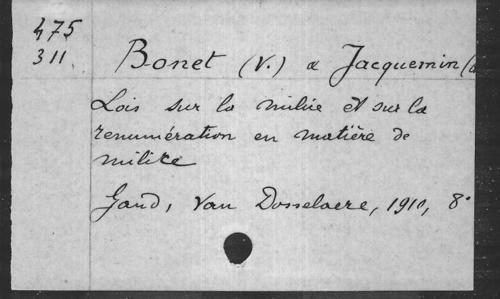 475
311
Bonet (V.) & Jacquemin (
Lois sur la milice et sur la
renumération en matière de
milice
Gand, Van Dosselaere, 1910, 8°